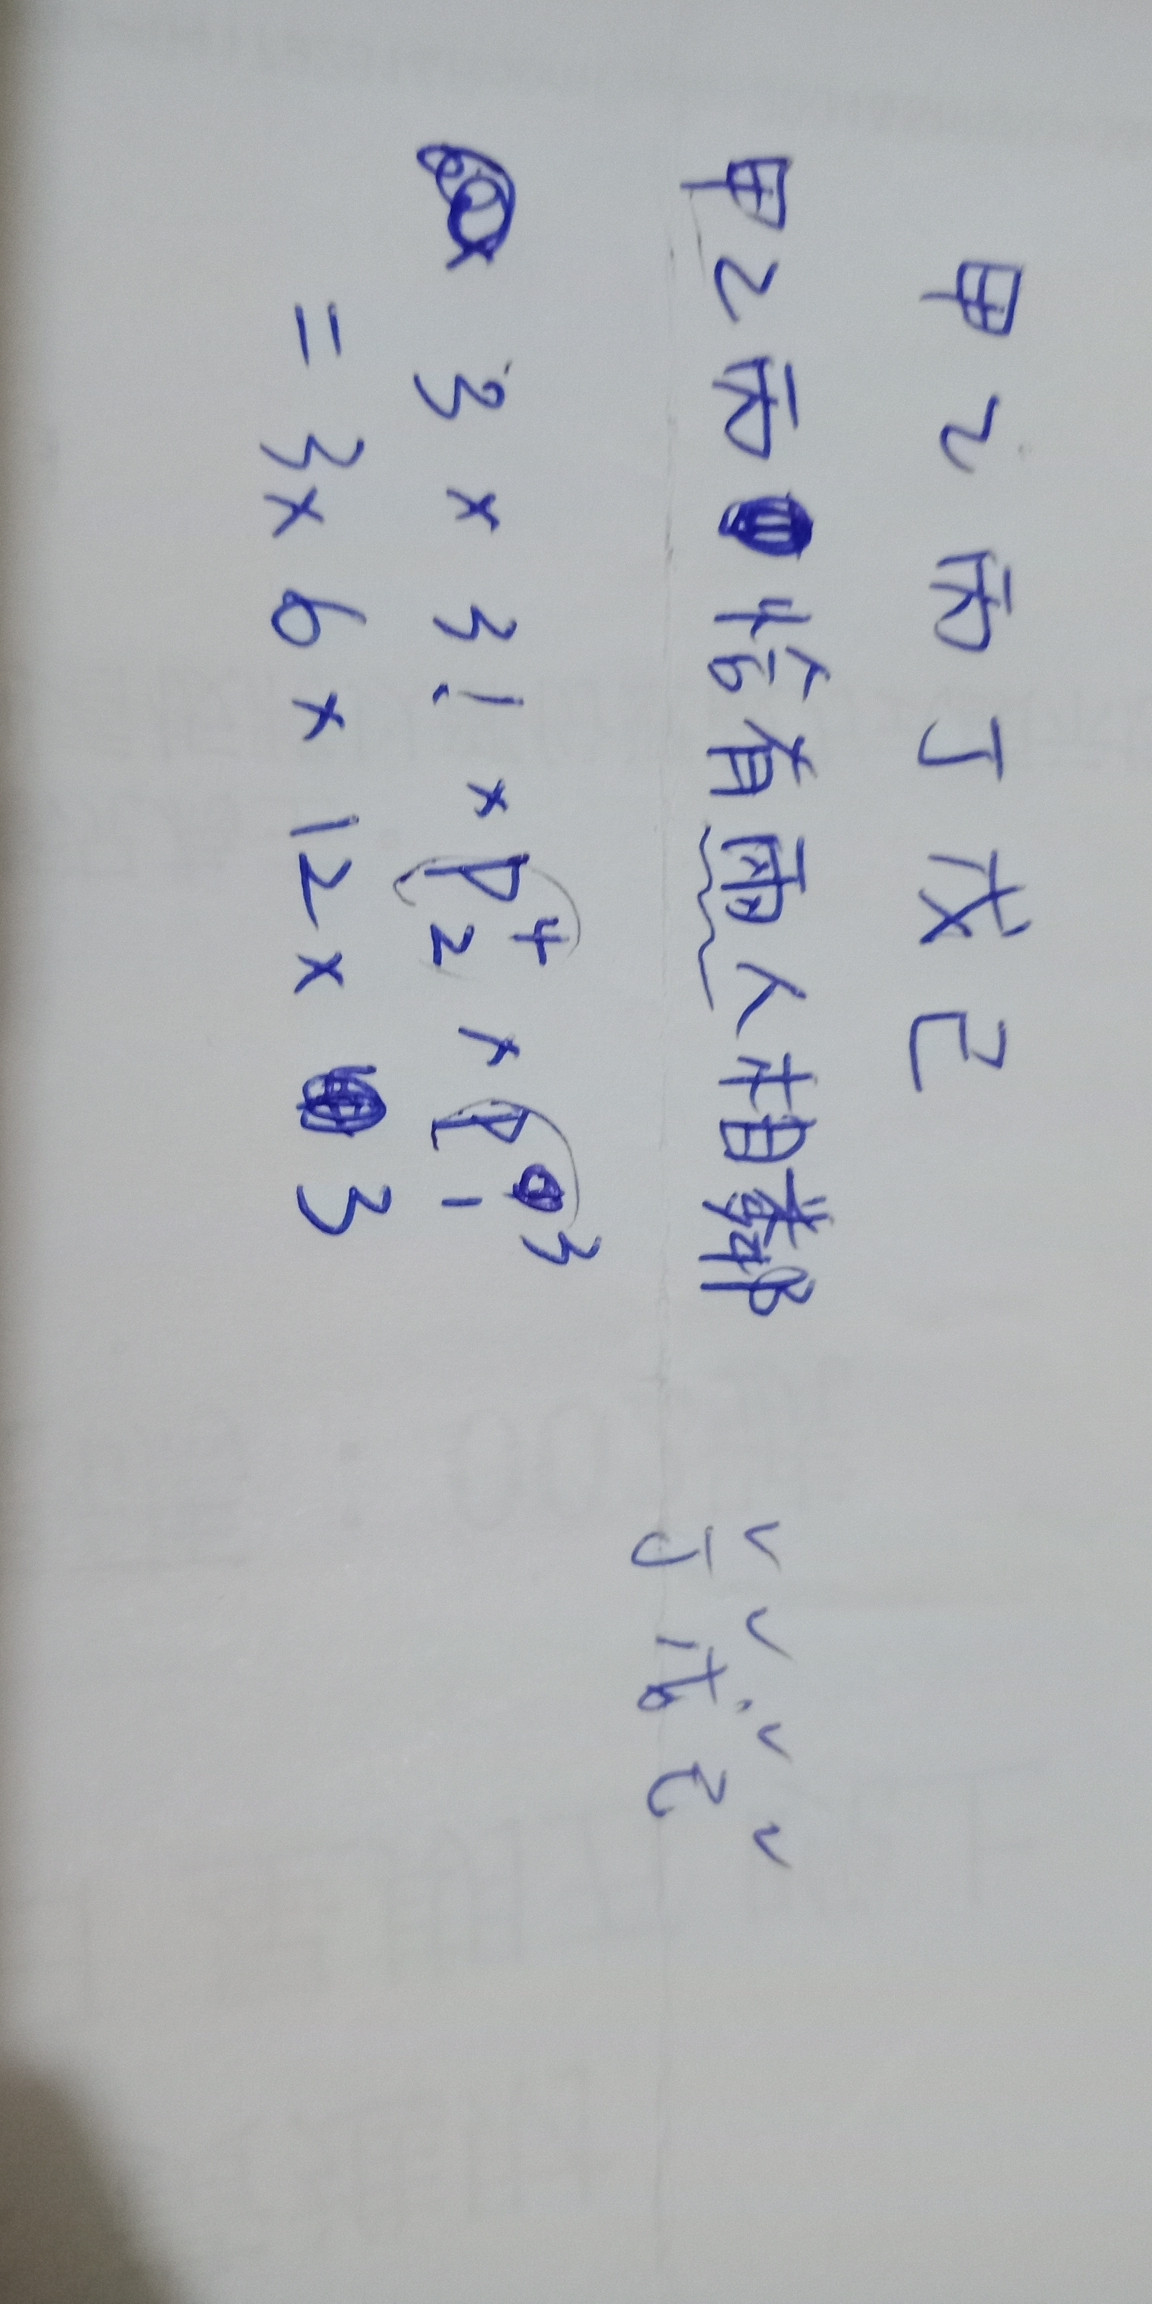 甲乙丙丁戊己
甲乙丙恰有兩人相鄰
丁戊己
3 × 3! × P⁴₂ × P³₁
= 3 × 6 × 12 × 3